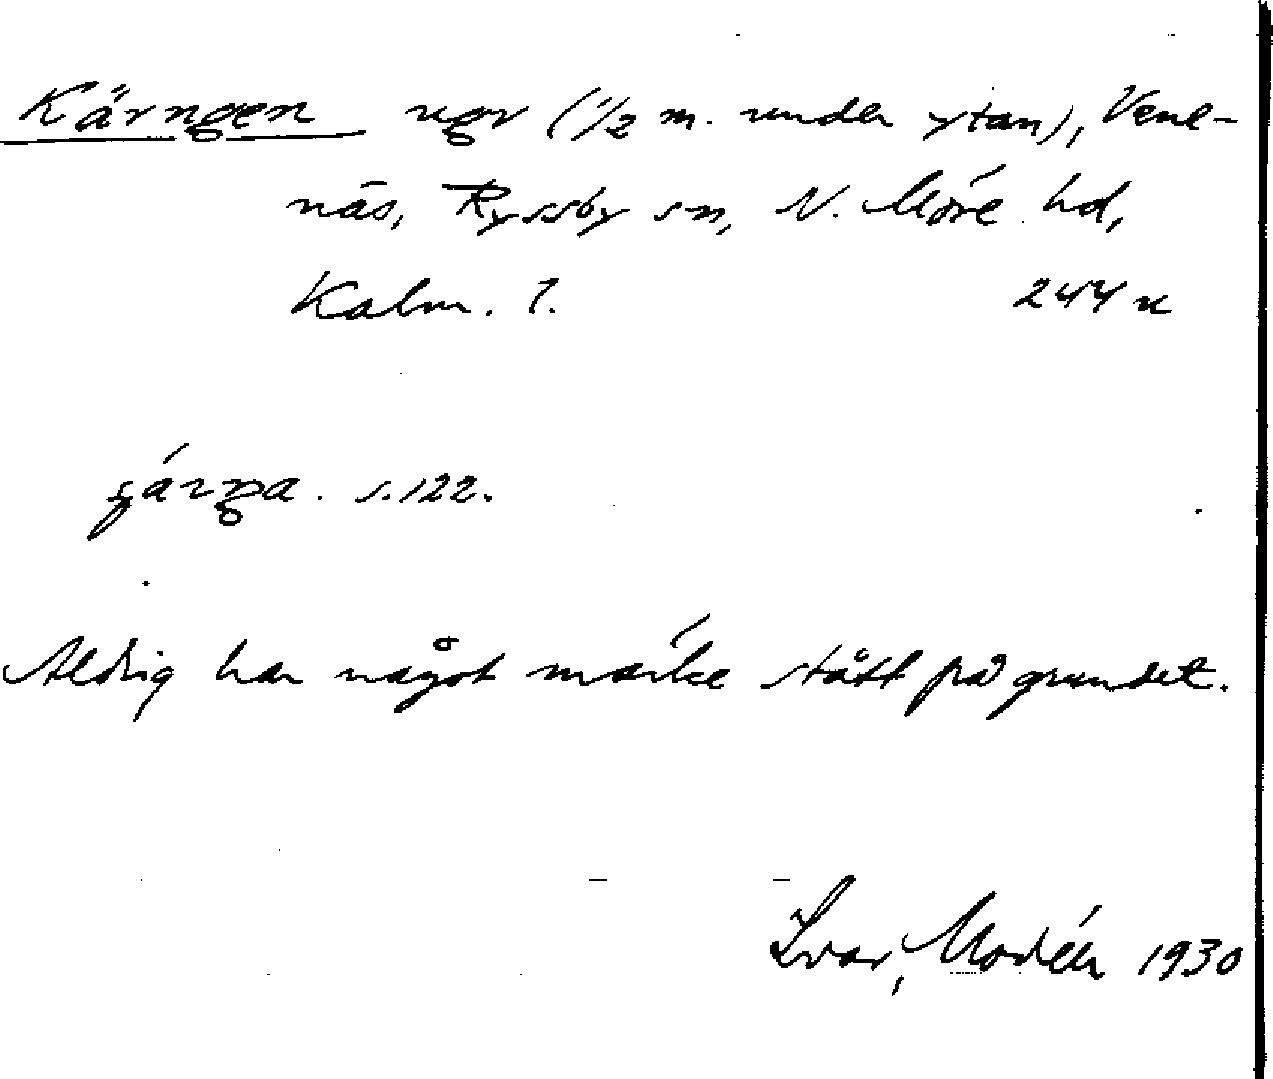 Kärngen ugr (1/2 m. under ytan), Vene-
näs, Ryssby sn, N. Möre hd,
Kalm. l. 244 n
s. 122.
Aldrig har något märke stått på grundet.
Ivar Modéer 1930